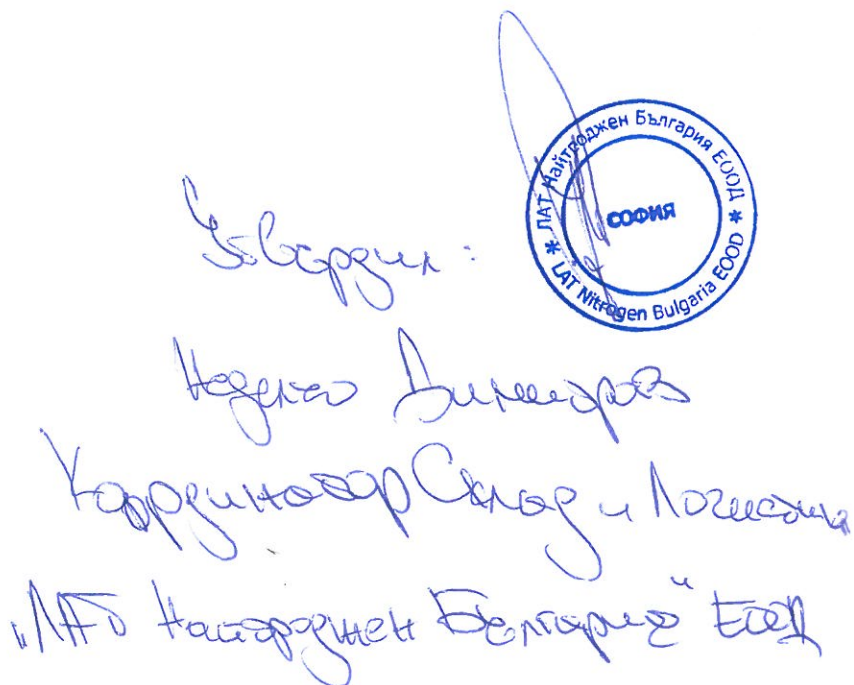 ЛАТ Найтроджен България ЕООД
СОФИЯ
LAT Nitrogen Bulgaria EOOD
Утвърдил:
Неделчо Димитров
Координатор Склад и Логистика
„ЛАТ Найтроджен България" ЕООД